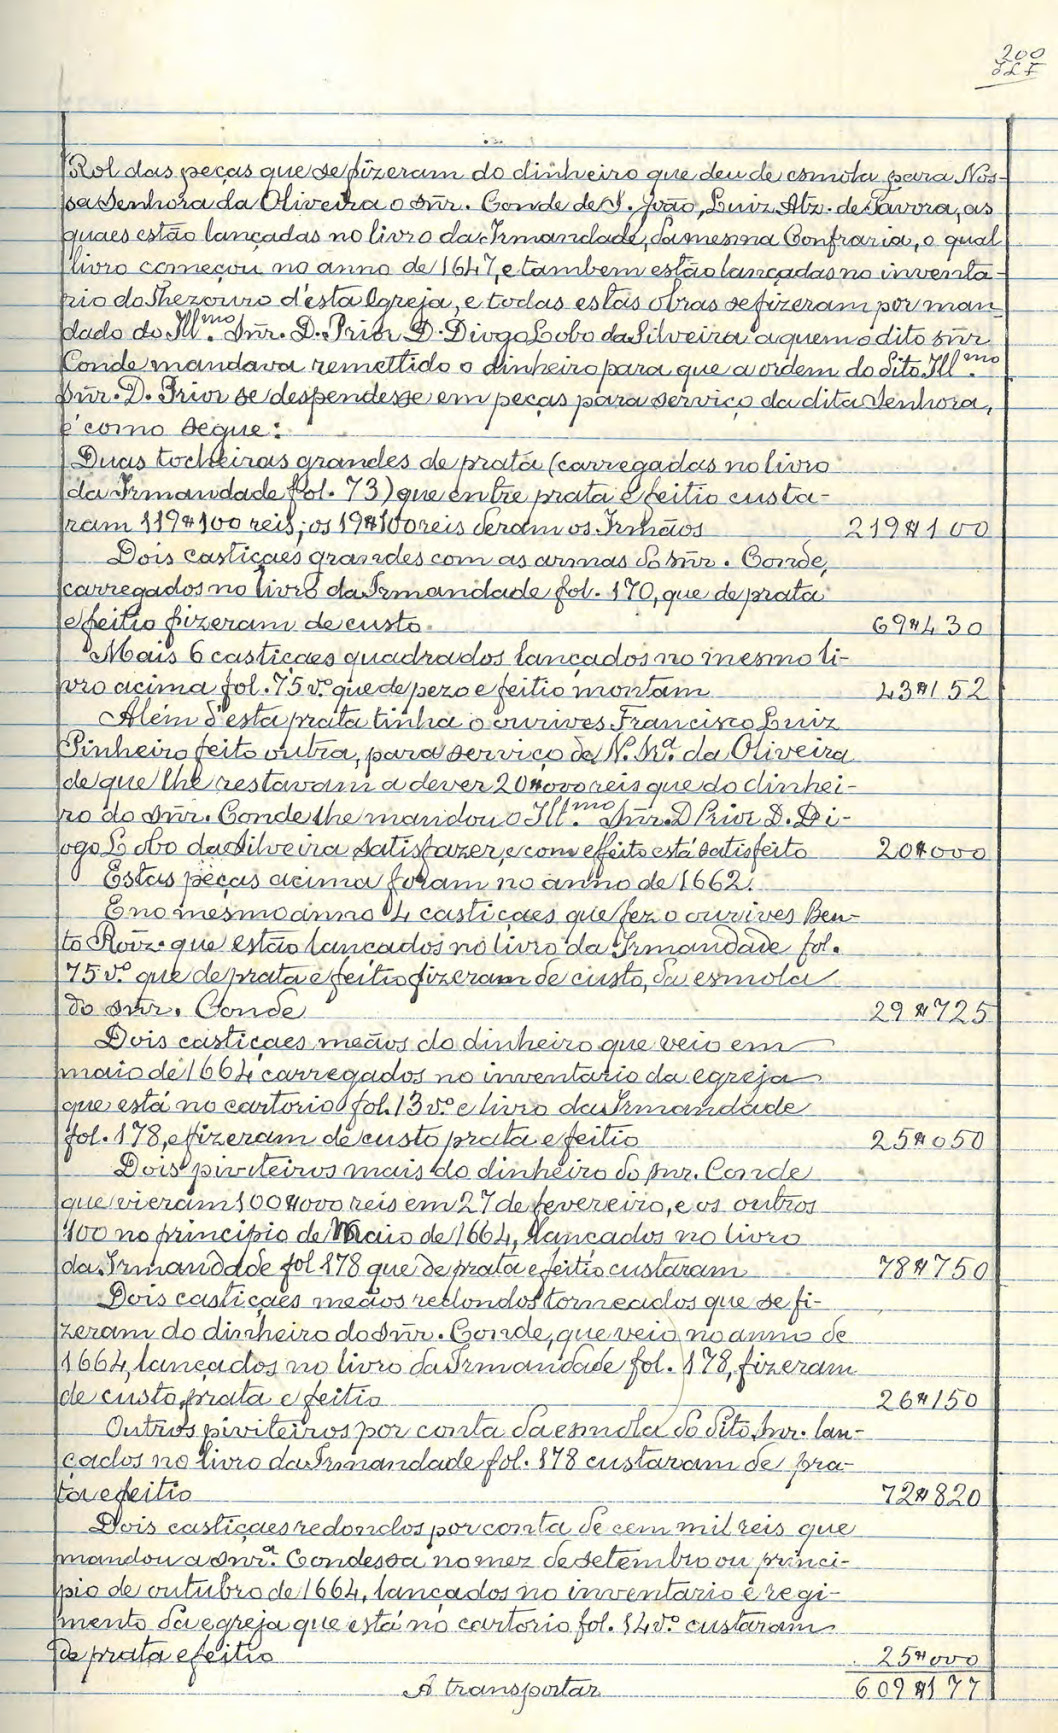 200
Rol das peças que se fizeram do dinheiro que deu de esmola para Nos-
sa Senhora da Oliveira o Snr. Conde de S. João, Luiz Alz. de Tavora, as
quaes estão lançadas no livro da Irmandade, da mesma Confraria, o qual
livro começou no anno de 1647, e tambem estão lançadas no inventa-
rio do Thezouro d'esta Igreja, e todas estas obras se fizeram por man-
dado do Illmo. Snr. D. Prior D. Diogo Lobo da Silveira a quem o dito snr
Conde mandava remettido o dinheiro para que a ordem do dito Illmo.
Snr. D. Prior se despendesse em peças para serviço da dita Senhora,
é como segue:
Duas tocheiras grandes de prata (carregadas no livro
da Irmandade fol. 73) que entre prata e feitio custa-
ram 119$100 reis; os 19$100 reis deram os Irmãos 219$100
Dois castiçaes grandes com as armas do snr. Conde,
carregados no livro da Irmandade fol. 170, que de prata
e feitio fizeram de custo 69$430
Mais 6 castiçaes quadrados lançados no mesmo li-
vro acima fol. 75 vº que de pezo e feitio montam 43$152
Além d'esta prata tinha o ourives Francisco Luiz
Pinheiro feito outra, para serviço de N. Srª. da Oliveira
de que lhe restavam a dever 20$000 reis que do dinhei-
ro do Snr. Conde lhe mandou o Illmo. Snr. D Prior D. Di-
ogo Lobo da Silveira satisfazer, e com effeito está satisfeito 20$000
Estas peças acima foram no anno de 1662.
E no mesmo anno 4 castiçaes que fez o ourives Ben-
to Roiz. que estão lançados no livro da Irmandade fol.
75 vº. que de prata e feitio fizeram de custo, da esmola
do snr. Conde 29$725
Dois castiçaes meãos do dinheiro que veio em
maio de 1664 carregados no inventario da egreja
que está no cartorio fol. 13 vº. e livro da Irmandade
fol. 178, e fizeram de custo prata e feitio 25$050
Dois piviteiros mais do dinheiro do snr. Conde
que vieram 100$000 reis em 27 de fevereiro, e os outros
100 no principio de Maio de 1664, lançados no livro
da Irmandade fol 178 que de prata e feitio custaram 78$750
Dois castiçaes meãos redondos torneados que se fi-
zeram do dinheiro do Snr. Conde, que veio no anno de
1664, lançados no livro da Irmandade fol. 178, fizeram
de custo, prata e feitio 26$150
Outros piviteiros por conta da esmola do dito Snr. lan-
çados no livro da Irmandade fol. 178 custaram de pra-
ta e feitio 72$820
Dois castiçaes redondos por conta de cem mil reis que
mandou a Snrª. Condessa no mez de setembro ou princi-
pio de outubro de 1664, lançados no inventario e regi-
mento da egreja que está no cartorio fol. 14 vº. custaram
de prata e feitio 25$000
A transportar 609$177